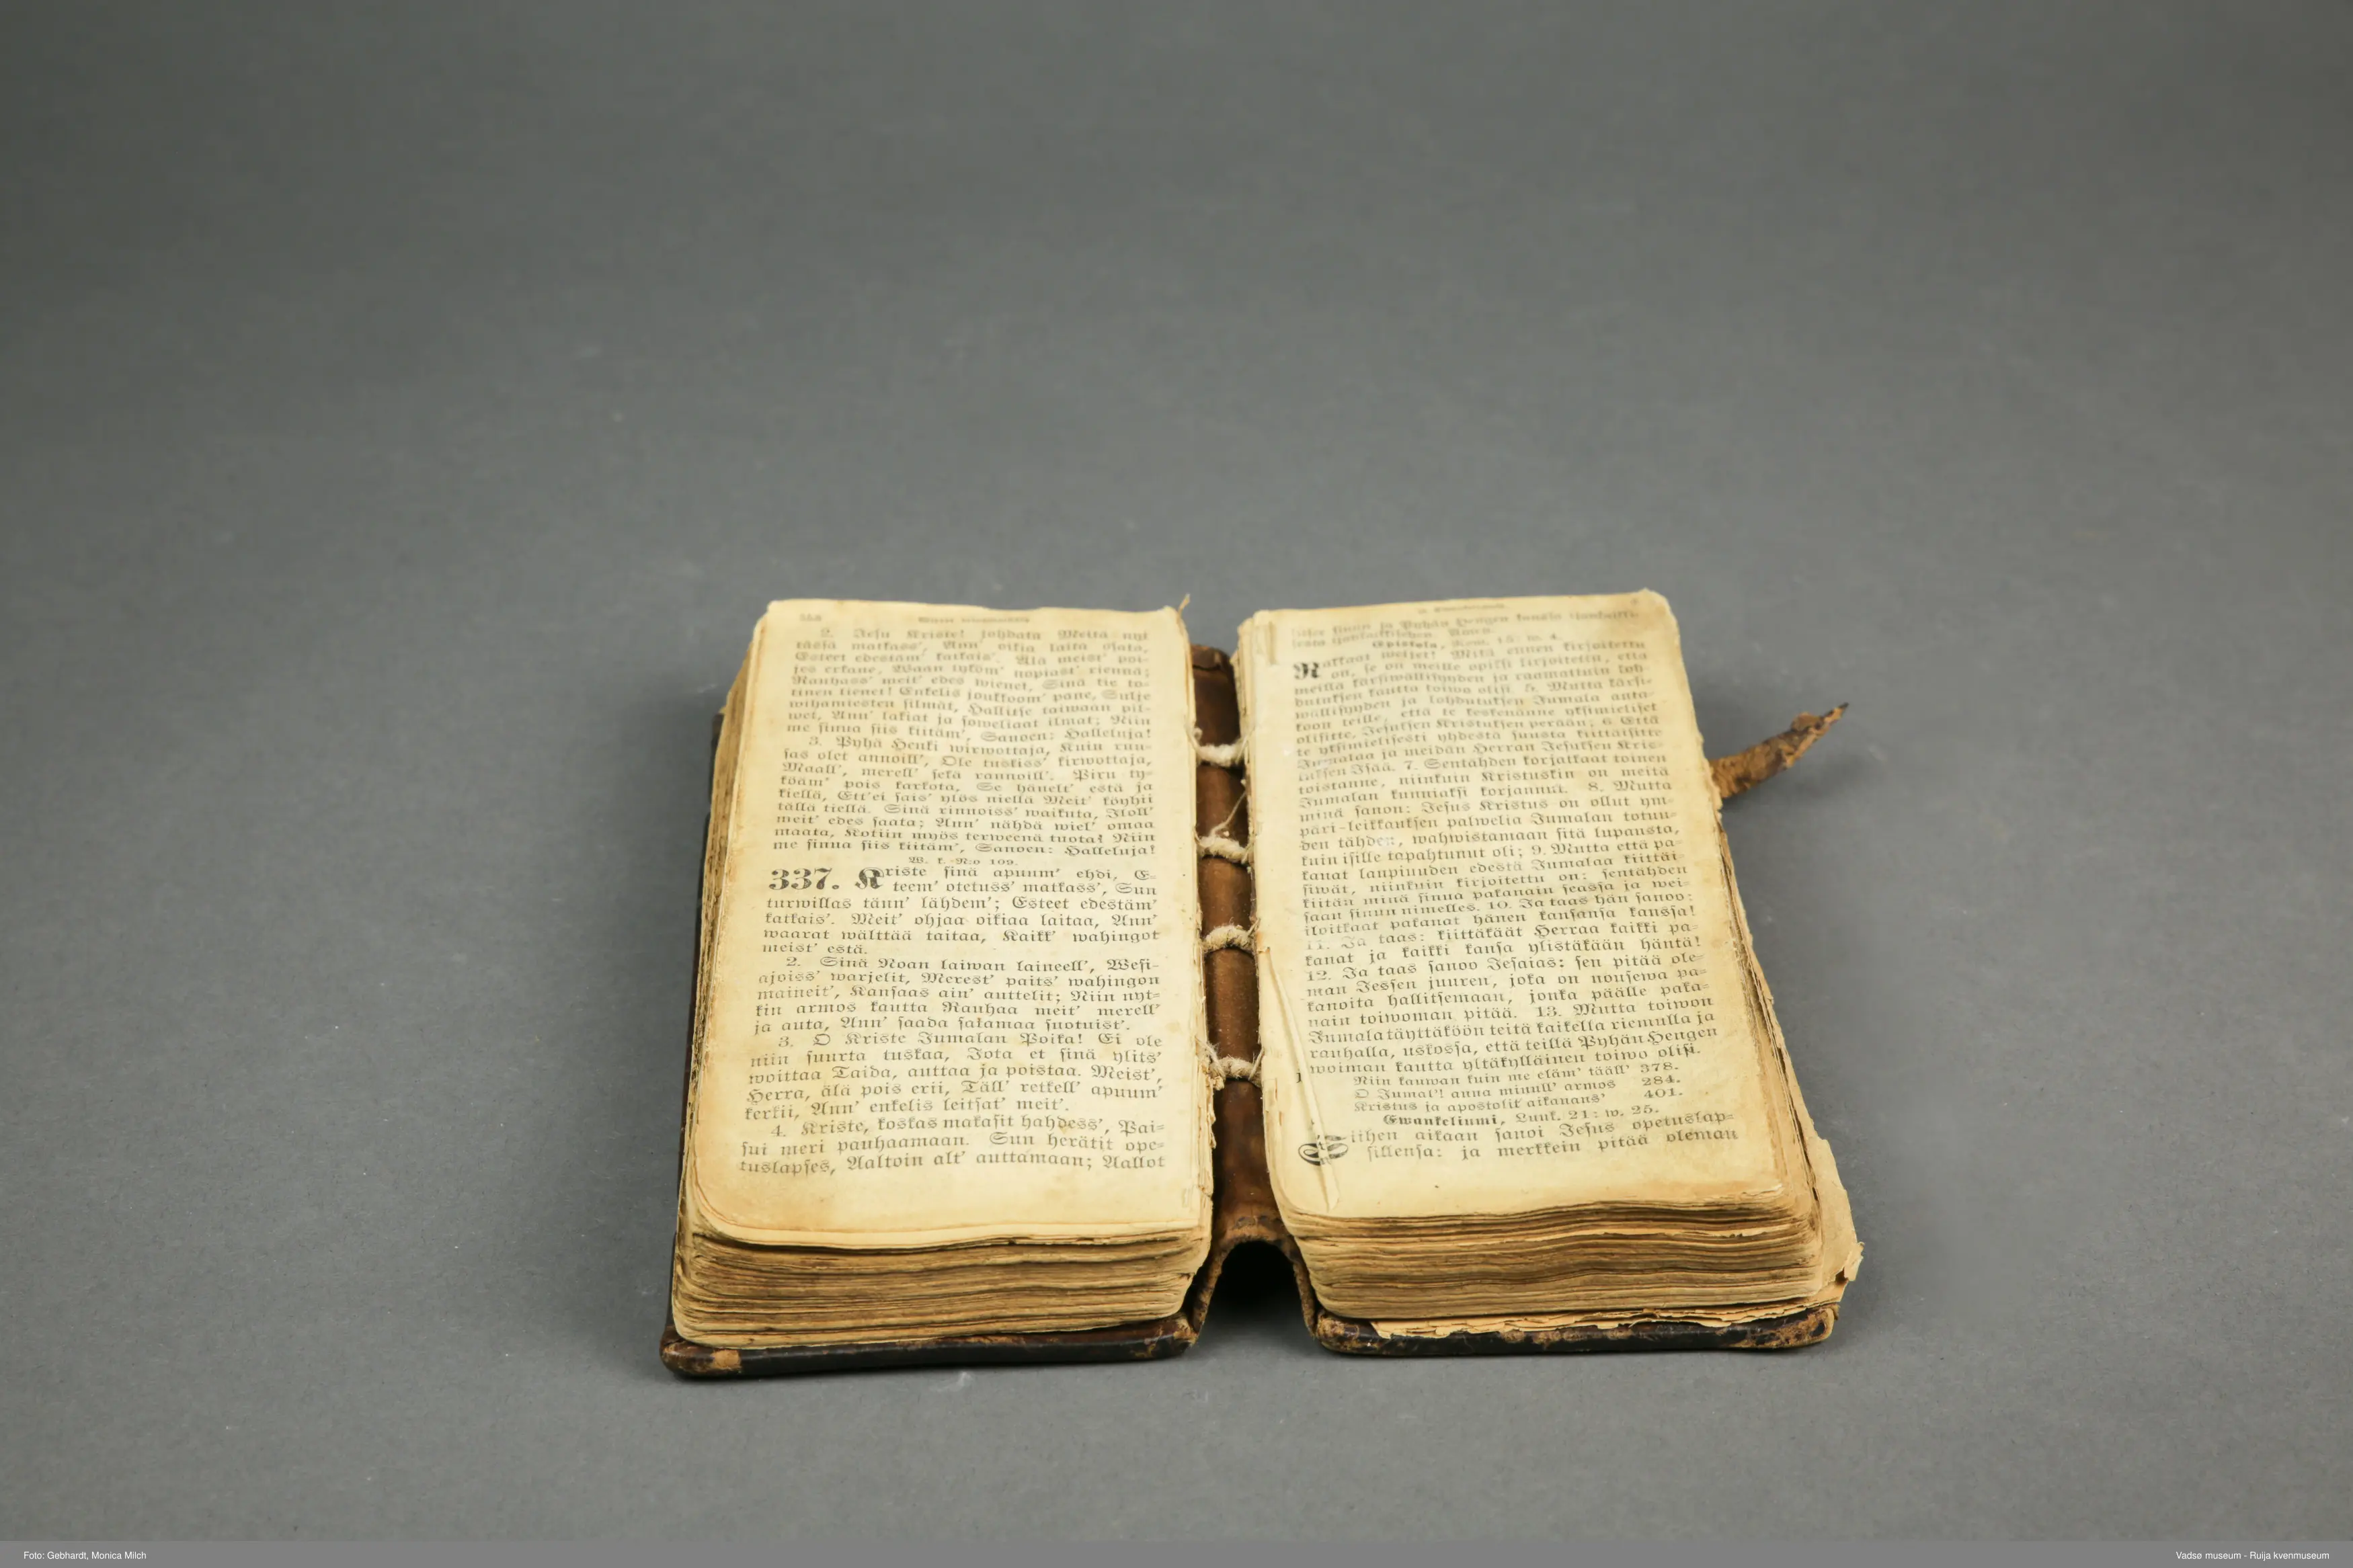 2. Jesu Kriste! johdata Meitä nyt
tässä matkass', Ann' oikia laita osata,
Esteet edestäm' katkais'. Älä meist' poi-
jes erkane, Waan tyköm' nopiast' riennä;
Rauhass' meit' edes wienet, Sinä tie to-
tinen lienet! Enkelis joukkoom' pane, Sulje
wihamiesten silmät, Hallitse taiwaan pil-
wet, Ann' lakiat ja soweliaat ilmat: Niin
me sinua siis kiitäm', Sanoen: Halleluja!
3. Pyhä Henki wirwottaja, Kuin ruu-
sas olet annoill', Ole tuskiss' kirwottaja,
Maall', merell' sekä rannoill'. Piru ty-
köäm' pois karkota, Se hänelt' estä ja
kiellä, Ett'ei sais' ylös niellä Meit' köyhii
tällä tiellä. Sinä rinnoiss' waikuta, Iloll'
meit' edes saata; Ann' nähdä wiel' omaa
maata, Kotiin myös terweenä tuota! Niin
me sinua siis kiitäm', Sanoen: Halleluja!
W. k. N:o 109.
337. Kriste sinä apuum' ehdi, E-
teem' otetuss' matkass', Sun
turwillas tänn' lähdem'; Esteet edestäm'
katkais'. Meit' ohjaa oikiaa laitaa, Ann'
waarat wälttää taitaa, Kaikk' wahingot
meist' estä.
2. Sinä Noan laiwan laineell', Wesi-
ajoiss' warjelit, Merest' paits' wahingon
maineit', Kansaas ain' auttelit; Niin nyt-
kin armos kautta Rauhaa meit' merell'
ja auta, Ann' saada satamaa suotuist'.
3. O Kriste Jumalan Poika! Ei ole
niin suurta tuskaa, Jota et sinä ylits'
woittaa Taida, auttaa ja poistaa. Meist',
Herra, älä pois erii, Täll' retkell' apuum'
kerkii, Ann' enkelis leitsat' meit'.
4. Kriste, koskas makasit hahdess', Pai-
sui meri pauhaamaan. Sun herätit ope-
tuslapses, Aaltoin alt' auttamaan; Aallot
sinun ja Pyhän Hengen kanssa
Epistola, Rom. 15: w. 4.
Rakkaat weljet! Mitä ennen kirjoitettu
on, se on meille opiksi kirjoitettu, että
meillä kärsiwällisyyden ja raamattuin loh-
dutuksen kautta toiwo olisi. 5. Mutta kärsi-
wällisyyden ja lohdutuksen Jumala anta-
koon teille, että te keskenänne yksimieliset
olisitte, Jesuksen Kristuksen perään; 6 Että
te yksimielisesti yhdestä suusta kiittäisitte
Jumalaa ja meidän Herran Jesuksen Kris-
tuksen Isää. 7. Sentähden korjatkaat toinen
toistanne, niinkuin Kristuskin on meitä
Jumalan kunniaksi korjannut. 8. Mutta
minä sanon: Jesus Kristus on ollut ym-
päri-leikkauksen palwelia Jumalan totuu-
den tähden, wahwistamaan sitä lupausta,
kuin isille tapahtunut oli; 9. Mutta että pa-
kanat laupiuden edestä Jumalaa kiittäi-
siwät, niinkuin kirjoitettu on: sentähden
kiitän minä sinua pakanain seassa ja wei-
saan sinun nimelles. 10. Ja taas hän sanoo:
iloitkaat pakanat hänen kansansa kanssa!
11. Ja taas: kiittäkäät Herraa kaikki pa-
kanat ja kaikki kansa ylistäkään häntä!
12. Ja taas sanoo Jesaias: sen pitää ole-
man Jessen juuren, joka on nousewa pa-
kanoita hallitsemaan, jonka päälle paka-
nain toiwoman pitää. 13. Mutta toiwon
Jumala täyttäköön teitä kaikella riemulla ja
rauhalla, uskossa, että teillä Pyhän Hengen
woiman kautta yltäkylläinen toiwo olisi.
Niin kauwan kuin me eläm' tääll' 378.
O Jumal'! anna minull' armos 284.
Kristus ja apostolit aikanans' 401.
Ewankeliumi, Luuk. 21: w. 25.
Siihen aikaan sanoi Jesus opetuslap-
sillensa: ja merkkein pitää oleman
Foto: Gebhardt, Monica Milch
Vadsø museum - Ruija kvenmuseum